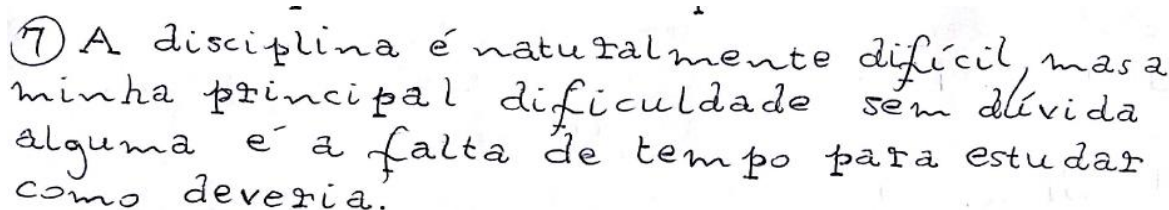 ⑦ A disciplina é naturalmente difícil, mas a
minha principal dificuldade sem dúvida
alguma é a falta de tempo para estudar
como deveria.